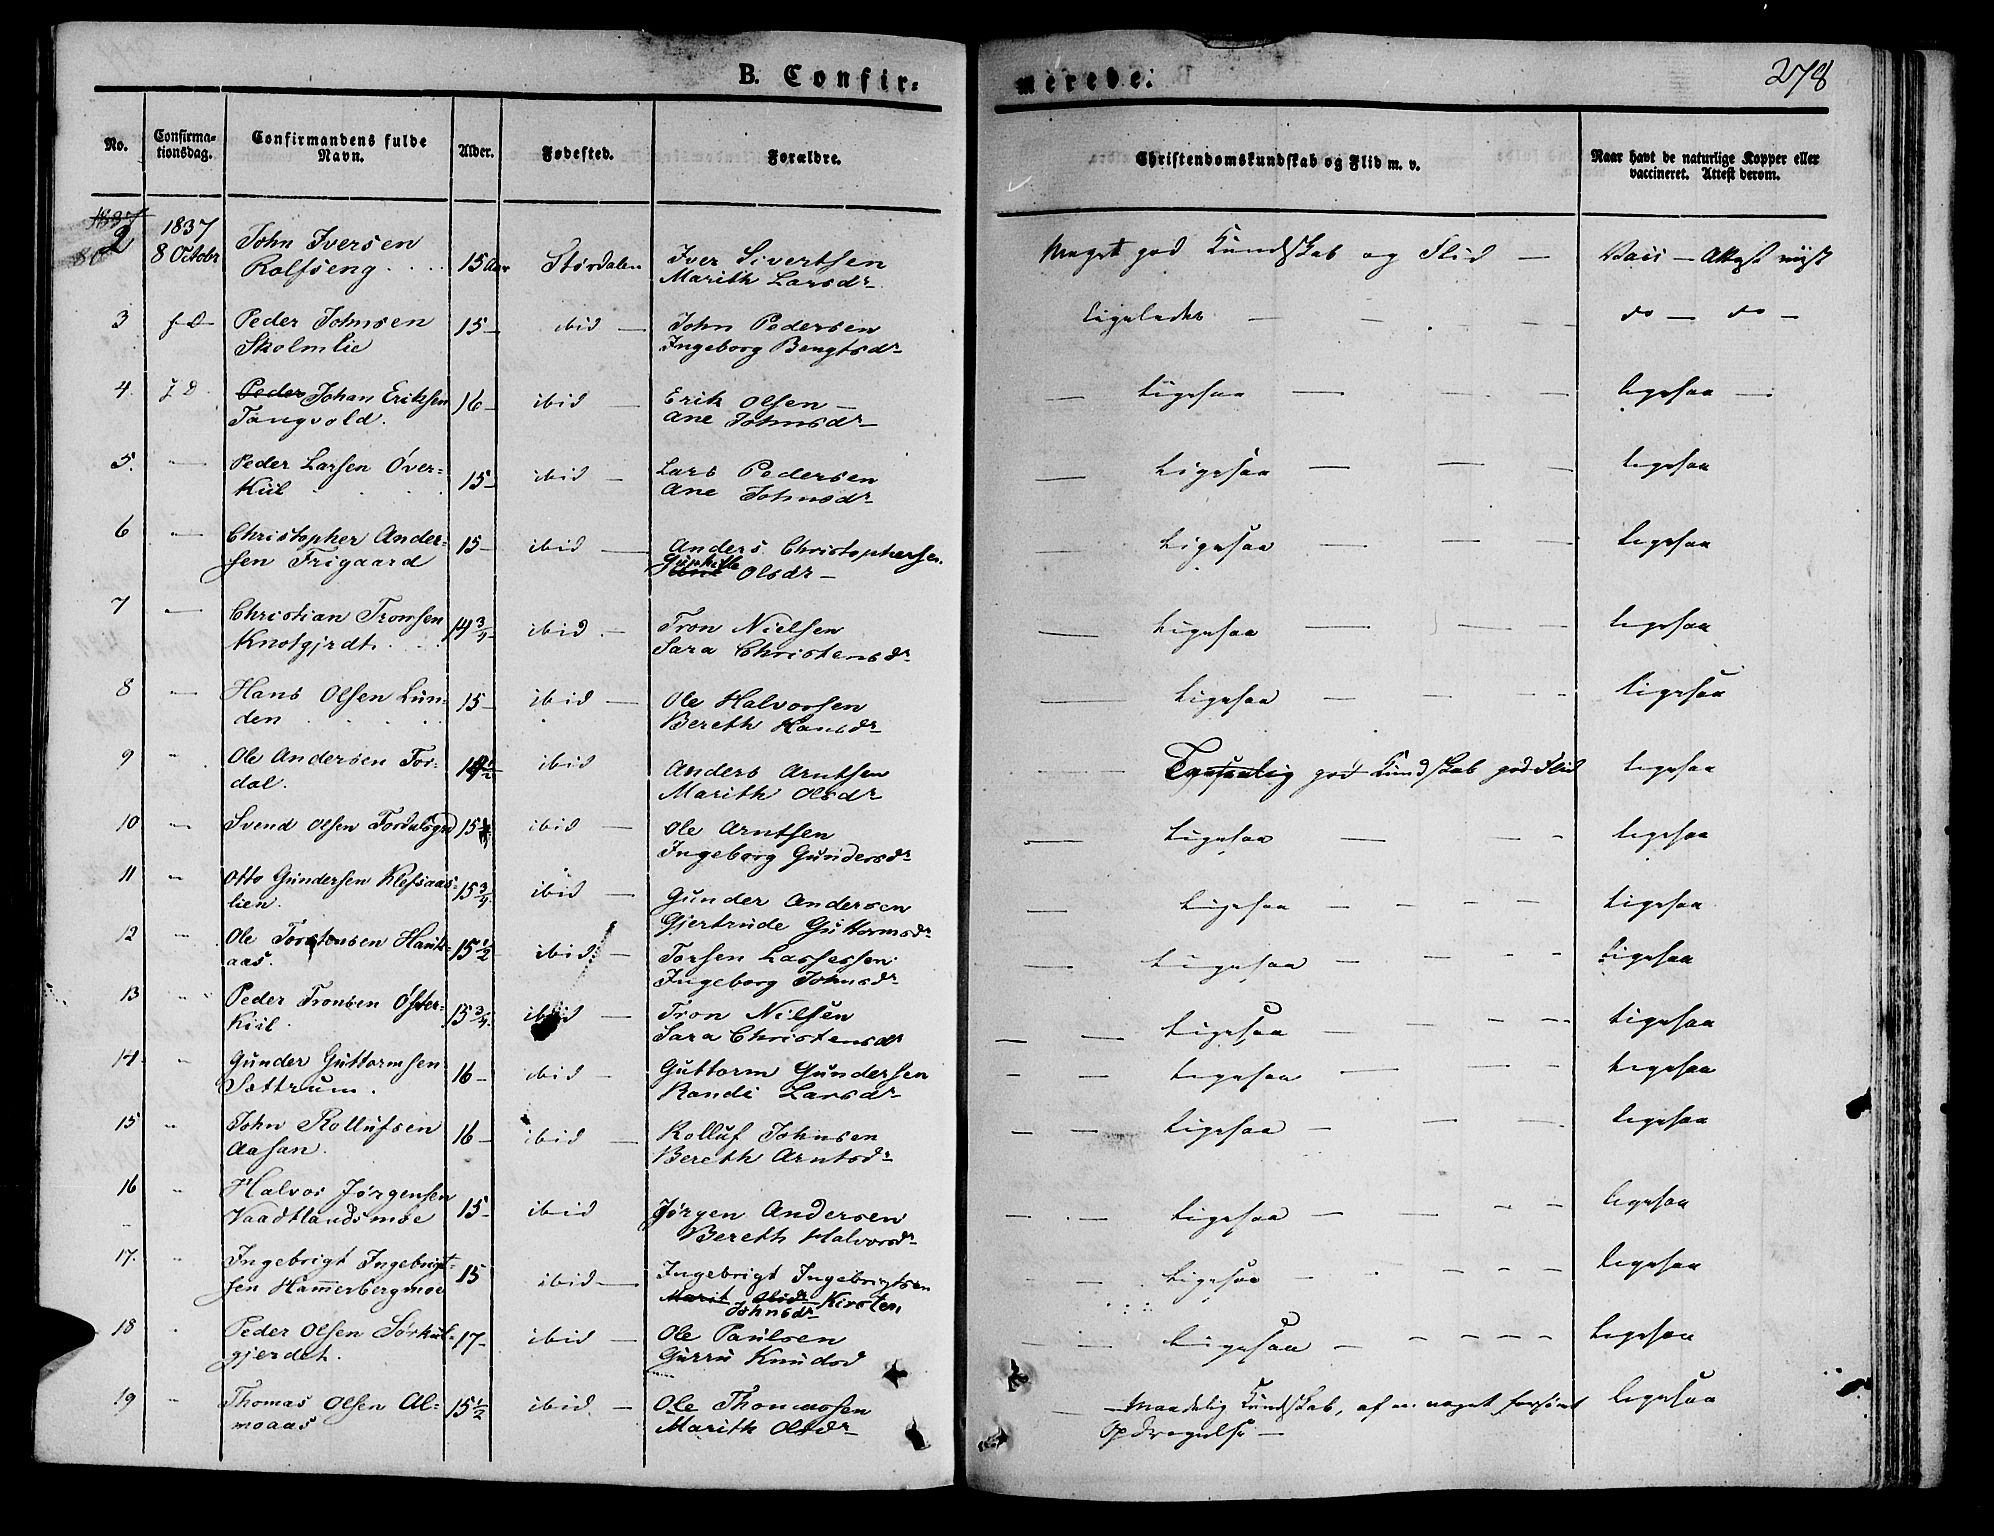 B. Confir- merede. 278
No. Confirmationsdag. Confirmandens fulde Navn. Alder. Fødested. Forældre. Christendomskundskab og Flid m. v. Naar havt de naturlige Kopper eller vaccineret. Attest derom.
1837
2 8 Octobr John Iversen 15 Aar Størdalen Iver Sivertsen Meget god Kundskab og Flid — Vacc — Attest
Rolfseng Marith Larsdr
3 Peder Johnsen 15 — ibid — John Pedersen Ligeledes — do — do —
Skolmlie Ingeborg Bengtsdr
4. Peder Johan Eriksen 16 — ibid — Erik Olsen — Ligesaa — ligesaa —
Tangvold. Ane Johnsdr —
5. — Peder Larsen Över- 15 — ibid — Lars Pedersen — Ligesaa — ligesaa
Kiil Ane Johnsdr
6 — Christopher Ander- 15 — ibid — Anders Christophersen — Ligesaa — ligesaa
sen Frigaard Olsdr —
7 — Christian Tronsen 14 3/4 ibid — Tron Nielsen — Ligesaa — ligesaa
Knotgjrdt Sara Christensdr
8 — Hans Olsen Lun- 15 — ibid — Ole Halvorsen — Ligesaa — ligesaa
den Bereth Hansdr
9 " Ole Andersen For- 14 1/2 ibid Anders Arntsen — god Kundskab god Flid ligesaa
dal. Marith Olsdr
10 — Svend Olsen Fordalsgrd 15 ibid — Ole Arntsen — Ligesaa — ligesaa
Ingeborg Gundersdr
11 " Otto Gundersen Klefsaas- 15 3/4 ibid — Gunder Andersen — Ligesaa — ligesaa
lien. Gjertrude Guttormsdr
12 " Ole Torstensen Hank- 15 1/2 ibid — Torsen Lassesen — Ligesaa — ligesaa
aas. Ingeborg Johnsdr
13 " Peder Tronsen Öster- 15 3/4 ibid — Tron Nielsen — Ligesaa — ligesaa
Kiil Sara Christensdr
14 " Gunder Guttormsen 16 — ibid — Guttorm Gundersen — Ligesaa — ligesaa
Sottrum. Randi Larsdr
15 " John Rollufsen 16 — ibid — Rolluf Johnsen — Ligesaa — ligesaa
Aasan. Bereth Arntsdr
16 " Halvor Jørgensen 15 — ibid Jørgen Andersen — Ligesaa — ligesaa
Vaadtlandsmoe Bereth Halvorsdr
17. " Ingebrigt Ingebrigt- 15 ibid — Ingebrigt Ingebrigtsen — Ligesaa — ligesaa
sen Hammerbergmoe Marit Olsdr Kirsten
Johnsdr
18 Peder Olsen Sørkül- 17 — ibid — Ole Paulsen — Ligesaa — ligesaa
gjerdet. Gurru Knudsd
19 " Thomas Olsen Al- 15 1/2 ibid — Ole Thomassen — Maadelig Kundskab, af en noget forsømt ligesaa
moaas Marith Olsdr Opdragelse —